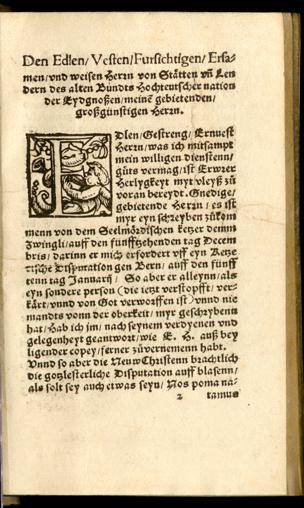 Den Edlen/Vesten/Fursichtigen/Ersa-
men/vnd weisen Herrn von Stätten vñ Len
dern des alten Bündts Hochteutscher nation
der Eydgnoßen/meinẽ gebietenden/
großgünstigen Herrn.
EDlen/Gestreng/Ernuest
Herrn/was ich mitsampt
mein willigen dienstenn/
güts vermag/ist Erwrer
Herlygkeyt myt vleyß zů
voran bereydt. Gnedige/
gebietende Herrn/es ist
myr eyn schreyben zůkom
menn von dem Seelmördischen ketzer demm
Zwingli/auff den fünfftzehenden tag Decem
bris/darinn er mich erfordert vff eyn Ketze
rische Disputation gen Bern/auff den fünff
tenn tag Januarij/ So aber er alleynn/als
eyn sondere person (die ietzt verstopfft/ver-
kärt/vnnd von Got verworffen ist) vnnd nie
mandts vonn der oberkeit/myr geschrybenn
hat/Hab ich jm/nach seynem verdyenen vnd
gelegenheyt geantwort/wie E. H. auß bey
ligender copey/ferner zůvernemenn habt.
Vnnd so aber die NeuwChristenn brachtlich
die gotzlesterliche Disputation auff blasenn/
als solt sey auch etwas seyn/Nos poma na-
2 tamus